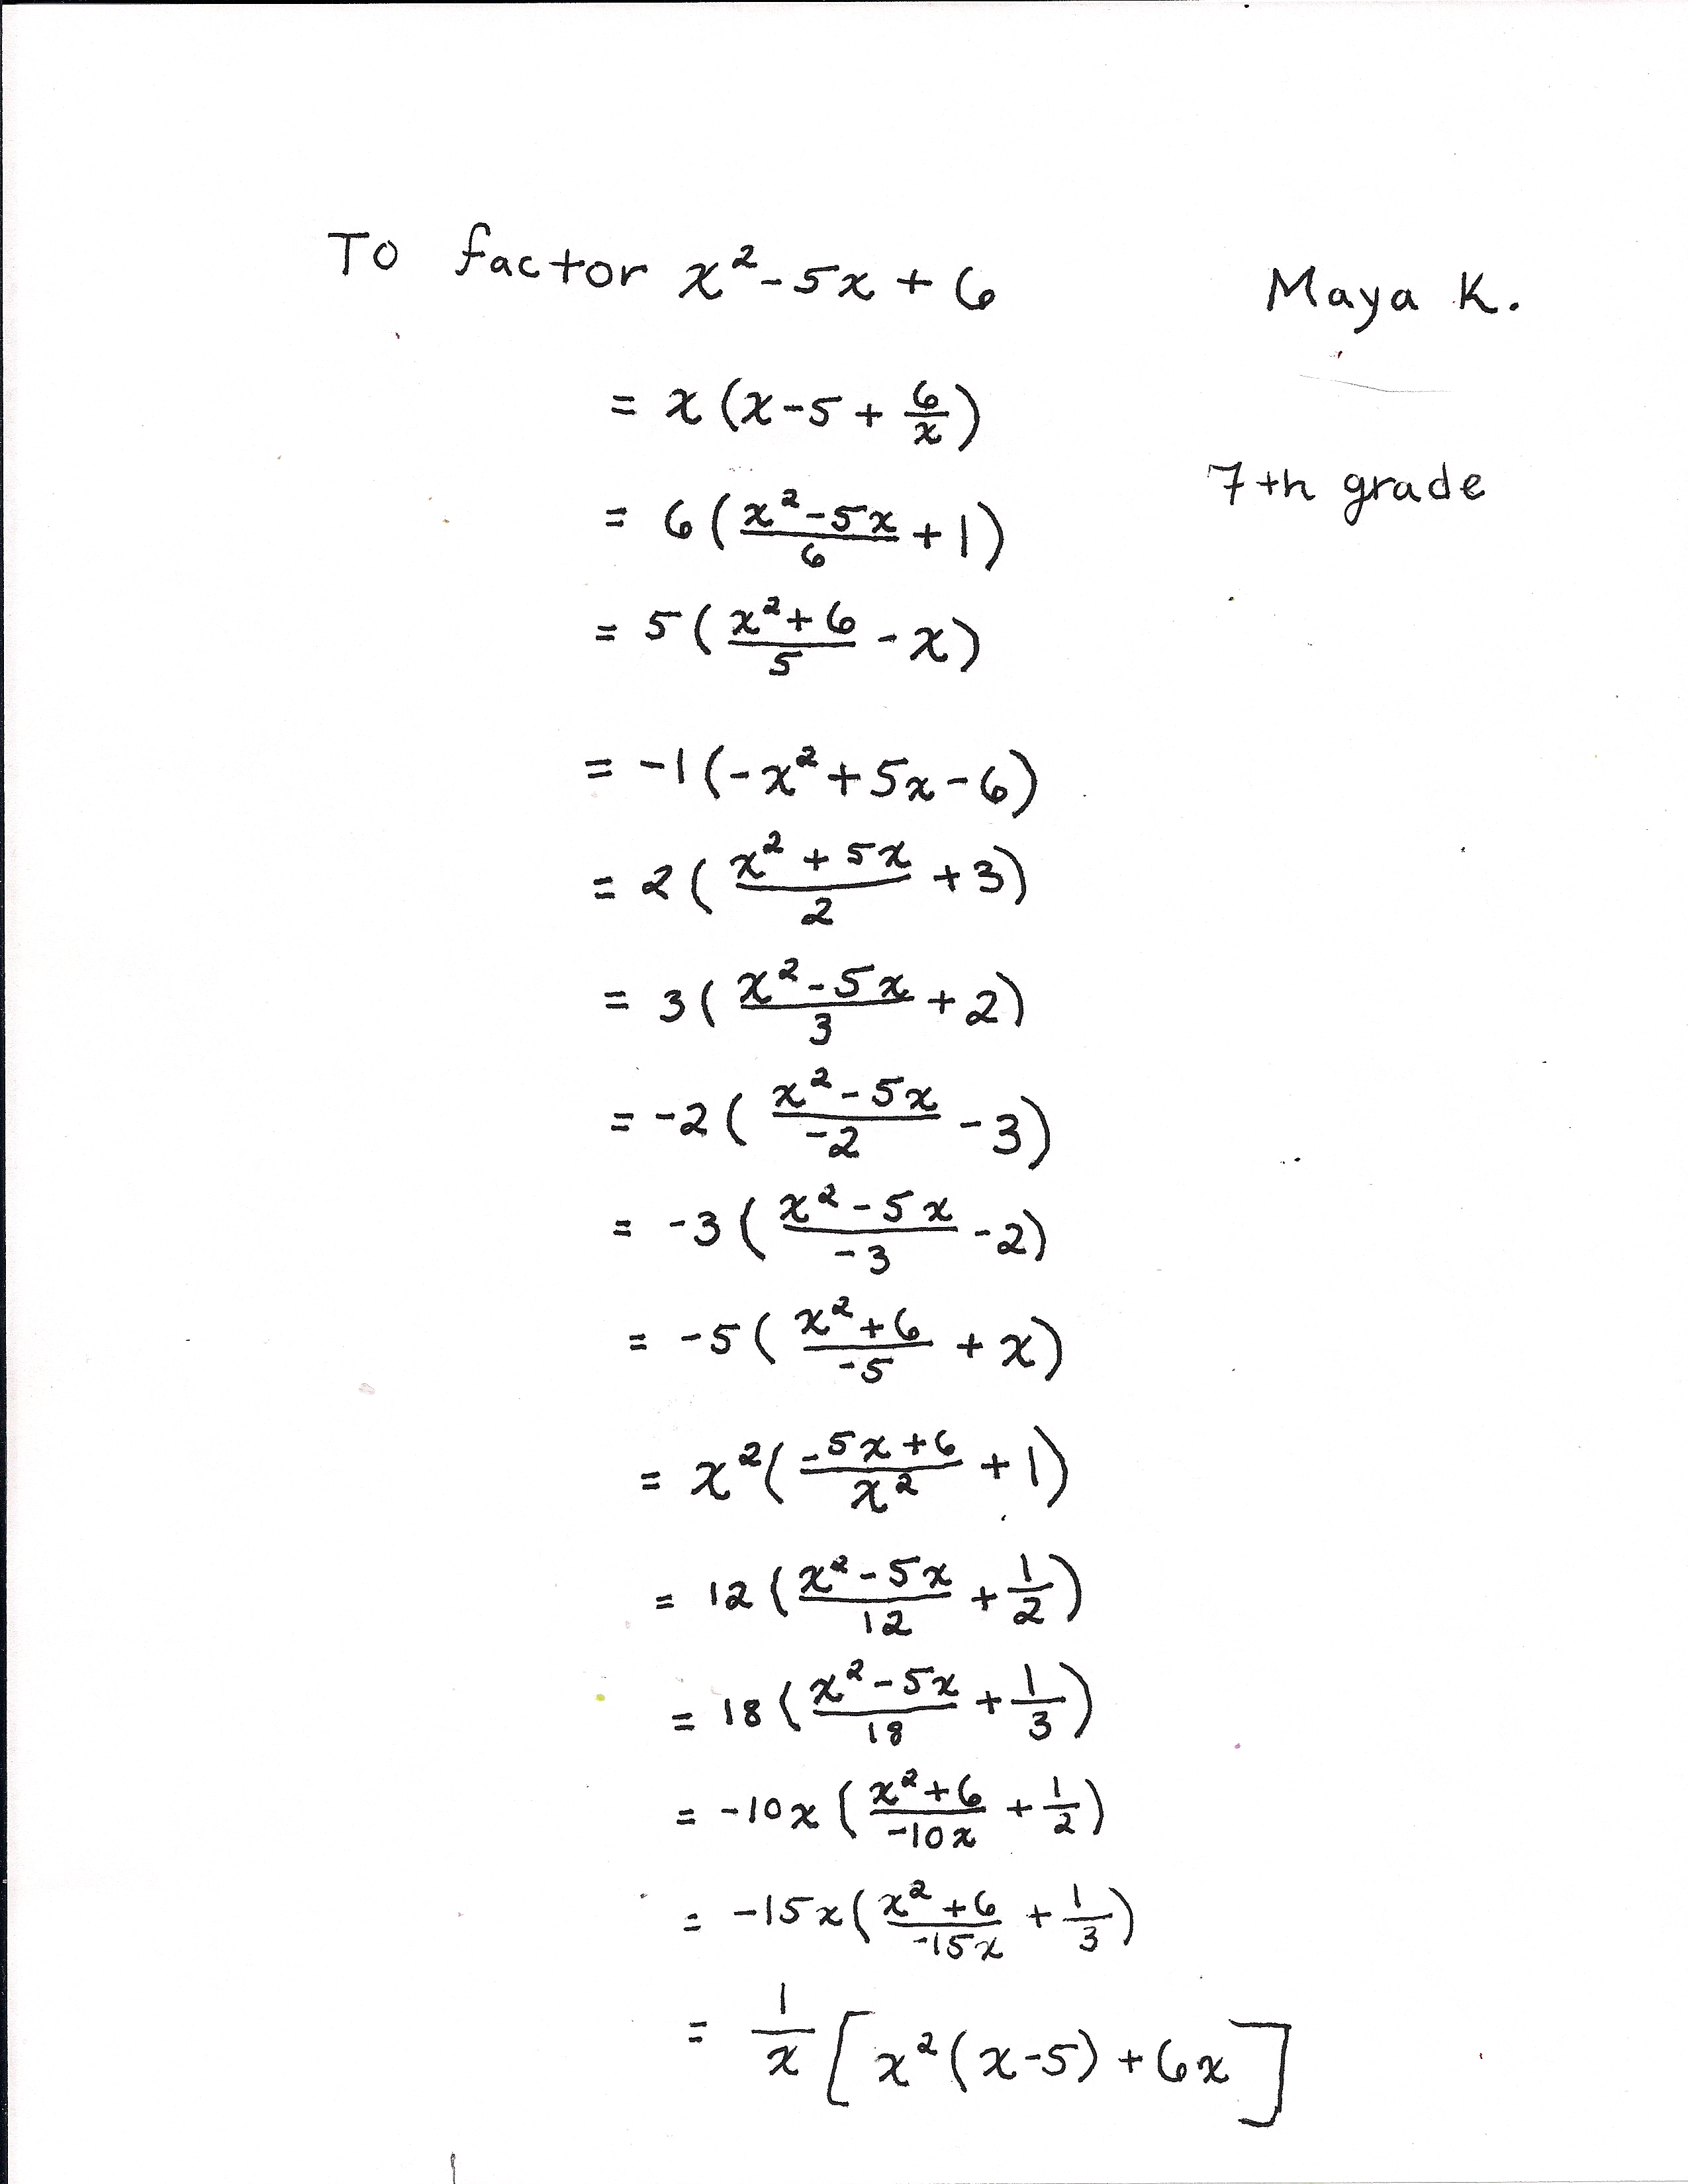 To factor x² - 5x + 6
Maya K.
= x (x - 5 + 6/x)
7th grade
= 6 ( (x² - 5x)/6 + 1)
= 5 ( (x² + 6)/5 - x)
= -1 (-x² + 5x - 6)
= 2 ( (x² + 5x)/2 + 3)
= 3 ( (x² - 5x)/3 + 2)
= -2 ( (x² - 5x)/-2 - 3)
= -3 ( (x² - 5x)/-3 - 2)
= -5 ( (x² + 6)/-5 + x)
= x² ( (-5x + 6)/x² + 1)
= 12 ( (x² - 5x)/12 + 1/2)
= 18 ( (x² - 5x)/18 + 1/3)
= -10x ( (x² + 6)/-10x + 1/2)
= -15x ( (x² + 6)/-15x + 1/3)
= 1/x [ x² (x - 5) + 6x ]